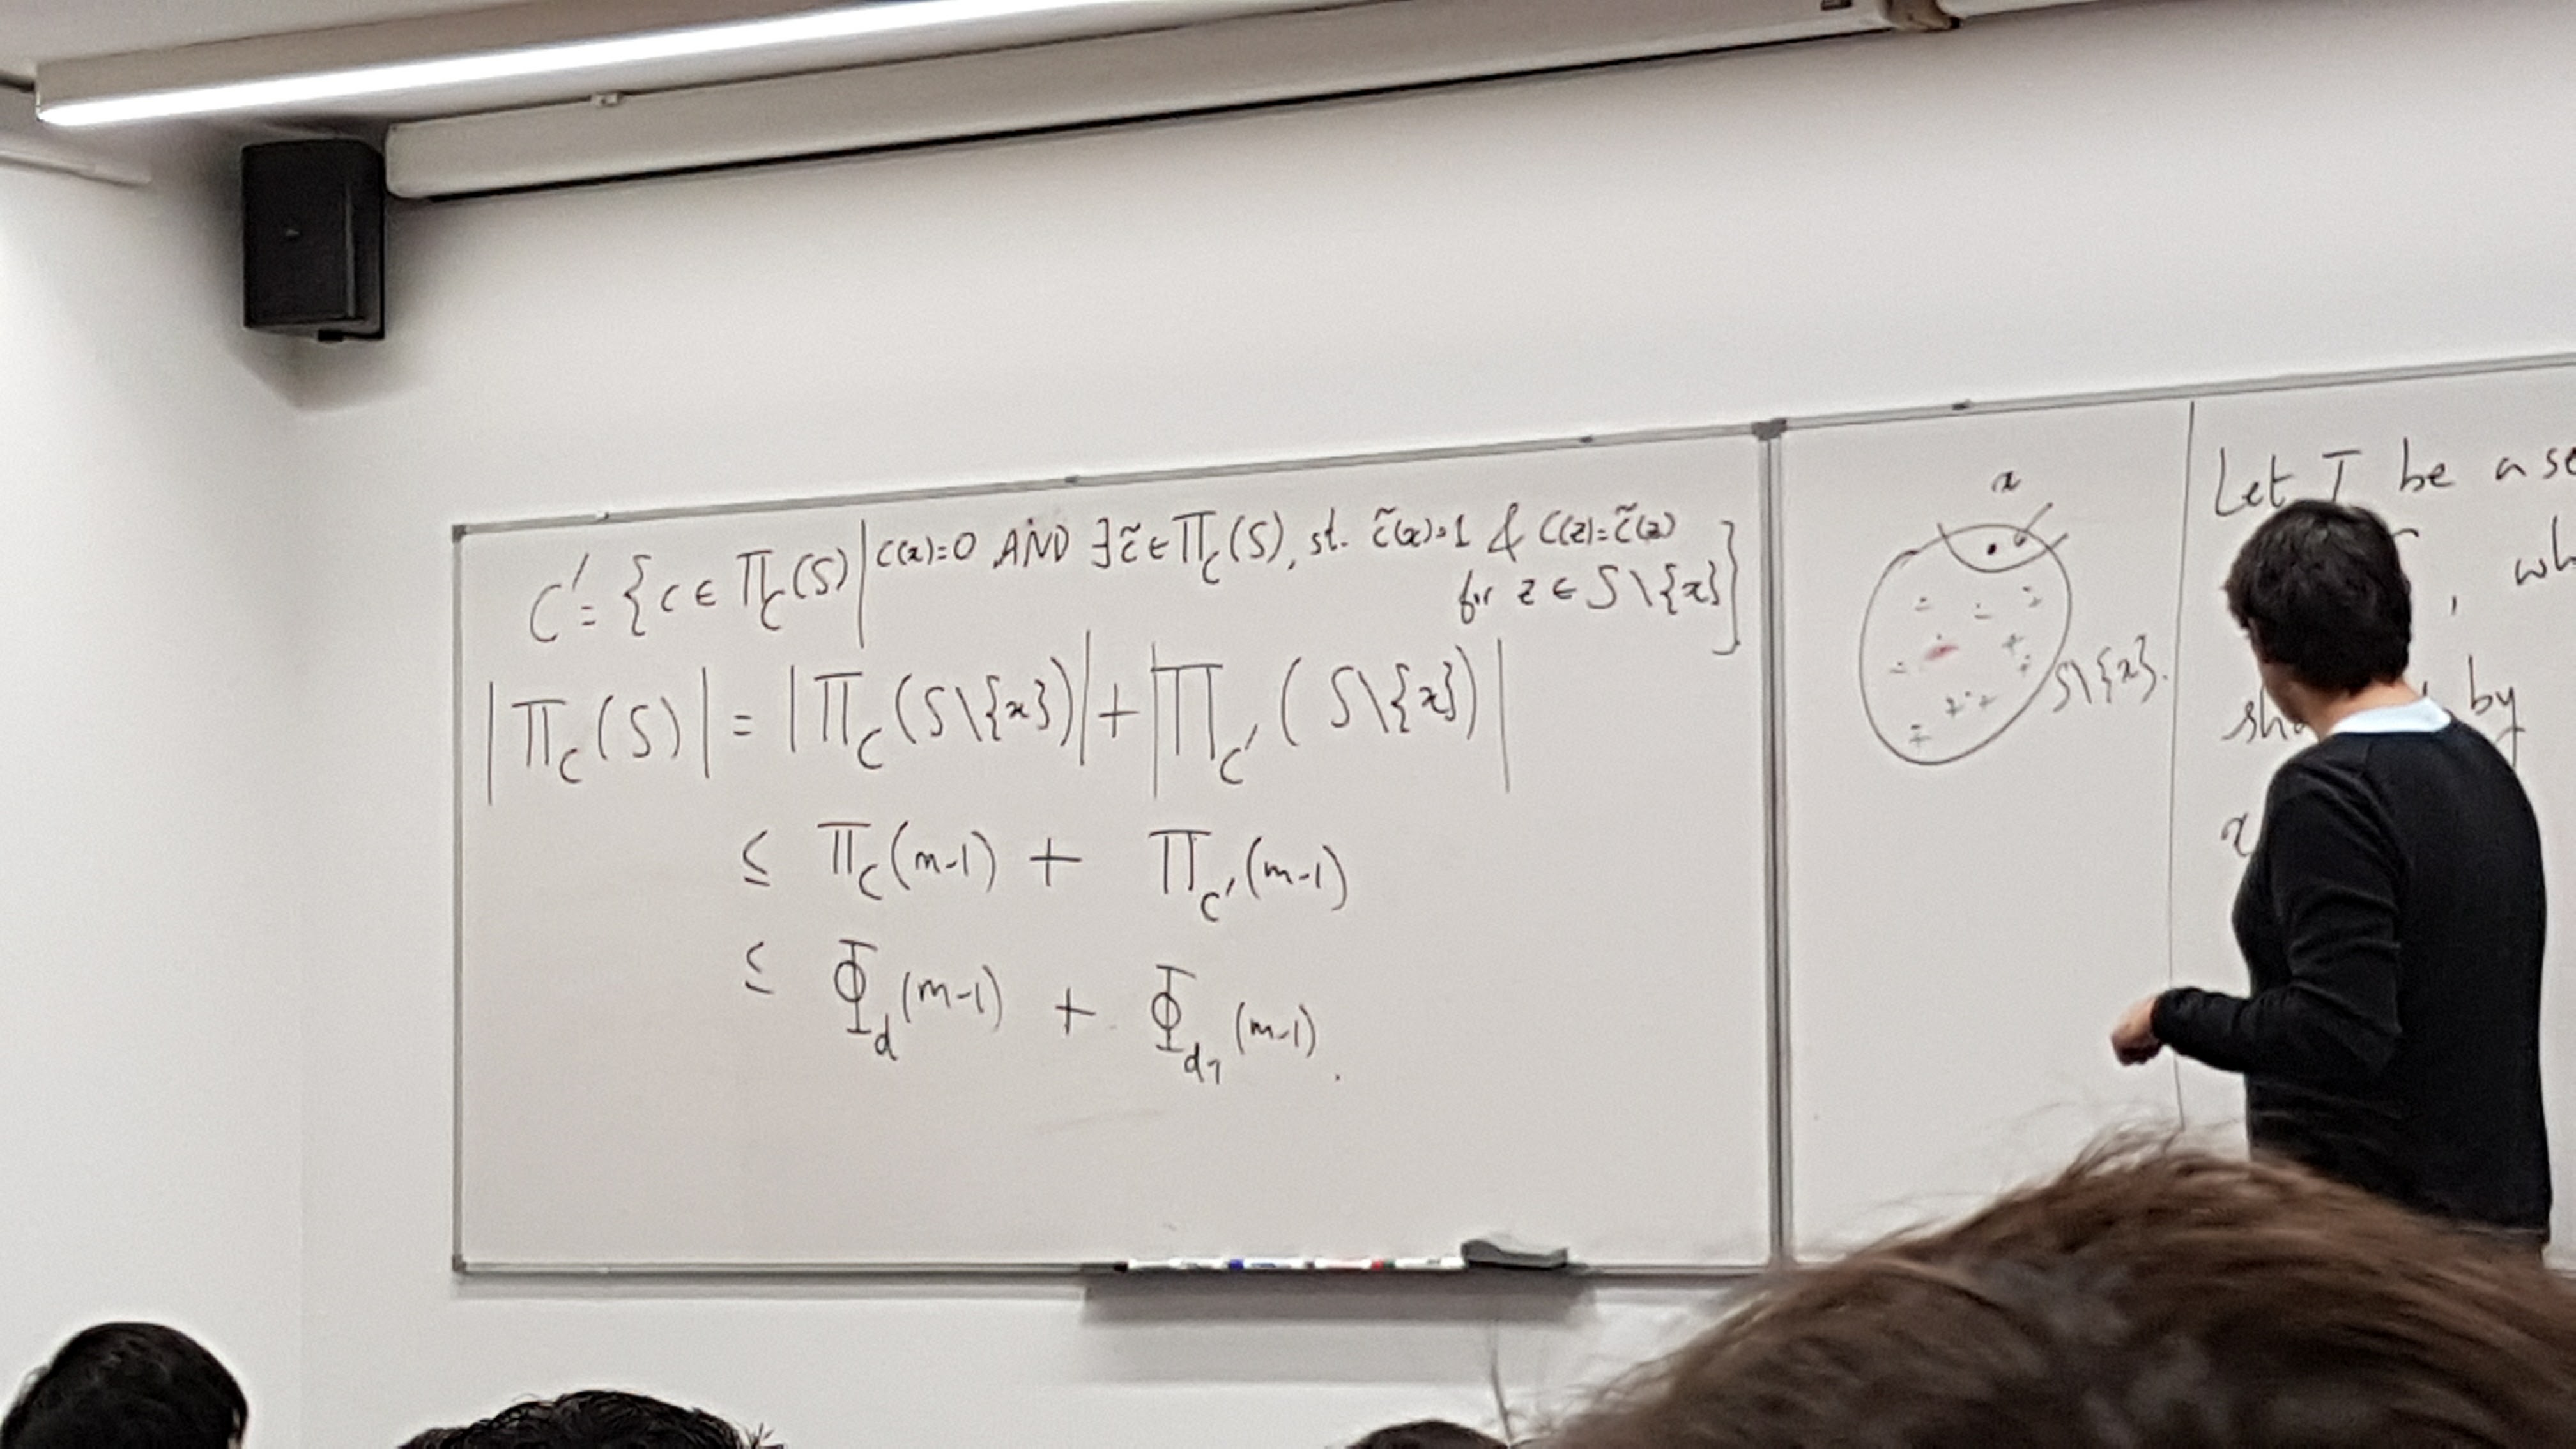 C' = {c ∈ Π_C(S) | c(x)=0 AND ∃ c̃ ∈ Π_C(S), st. c̃(x)=1 & c(z)=c̃(z)
for z ∈ S\{x}}
|Π_C(S)| = |Π_C(S\{x})| + |Π_C'(S\{x})|
≤ Π_C(m-1) + Π_C'(m-1)
≤ Φ_d(m-1) + Φ_d-1(m-1).
x
S\{x}.
Let T be a
, wh
by
x